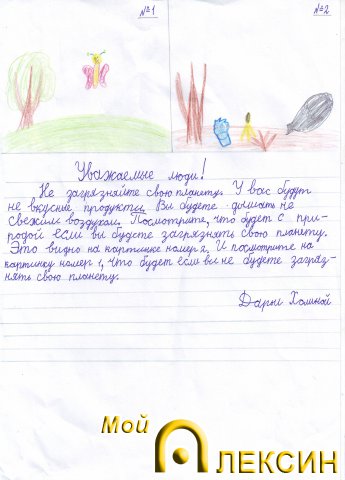 №1
№2
Уважаемые люди!
Не загрязняйте свою планету. У вас будут
не вкусние продукты. Ви будете дышать не
свежим воздухом. Посмотрите, что будет с при-
родой если вы будете загрязнять свою планету.
Это видно на картинке номер 2. И посмотрите на
картинку номер 1, что будет если вы не будете загряз-
нять свою планету.
Дарьи Холиной
Мой Алексин